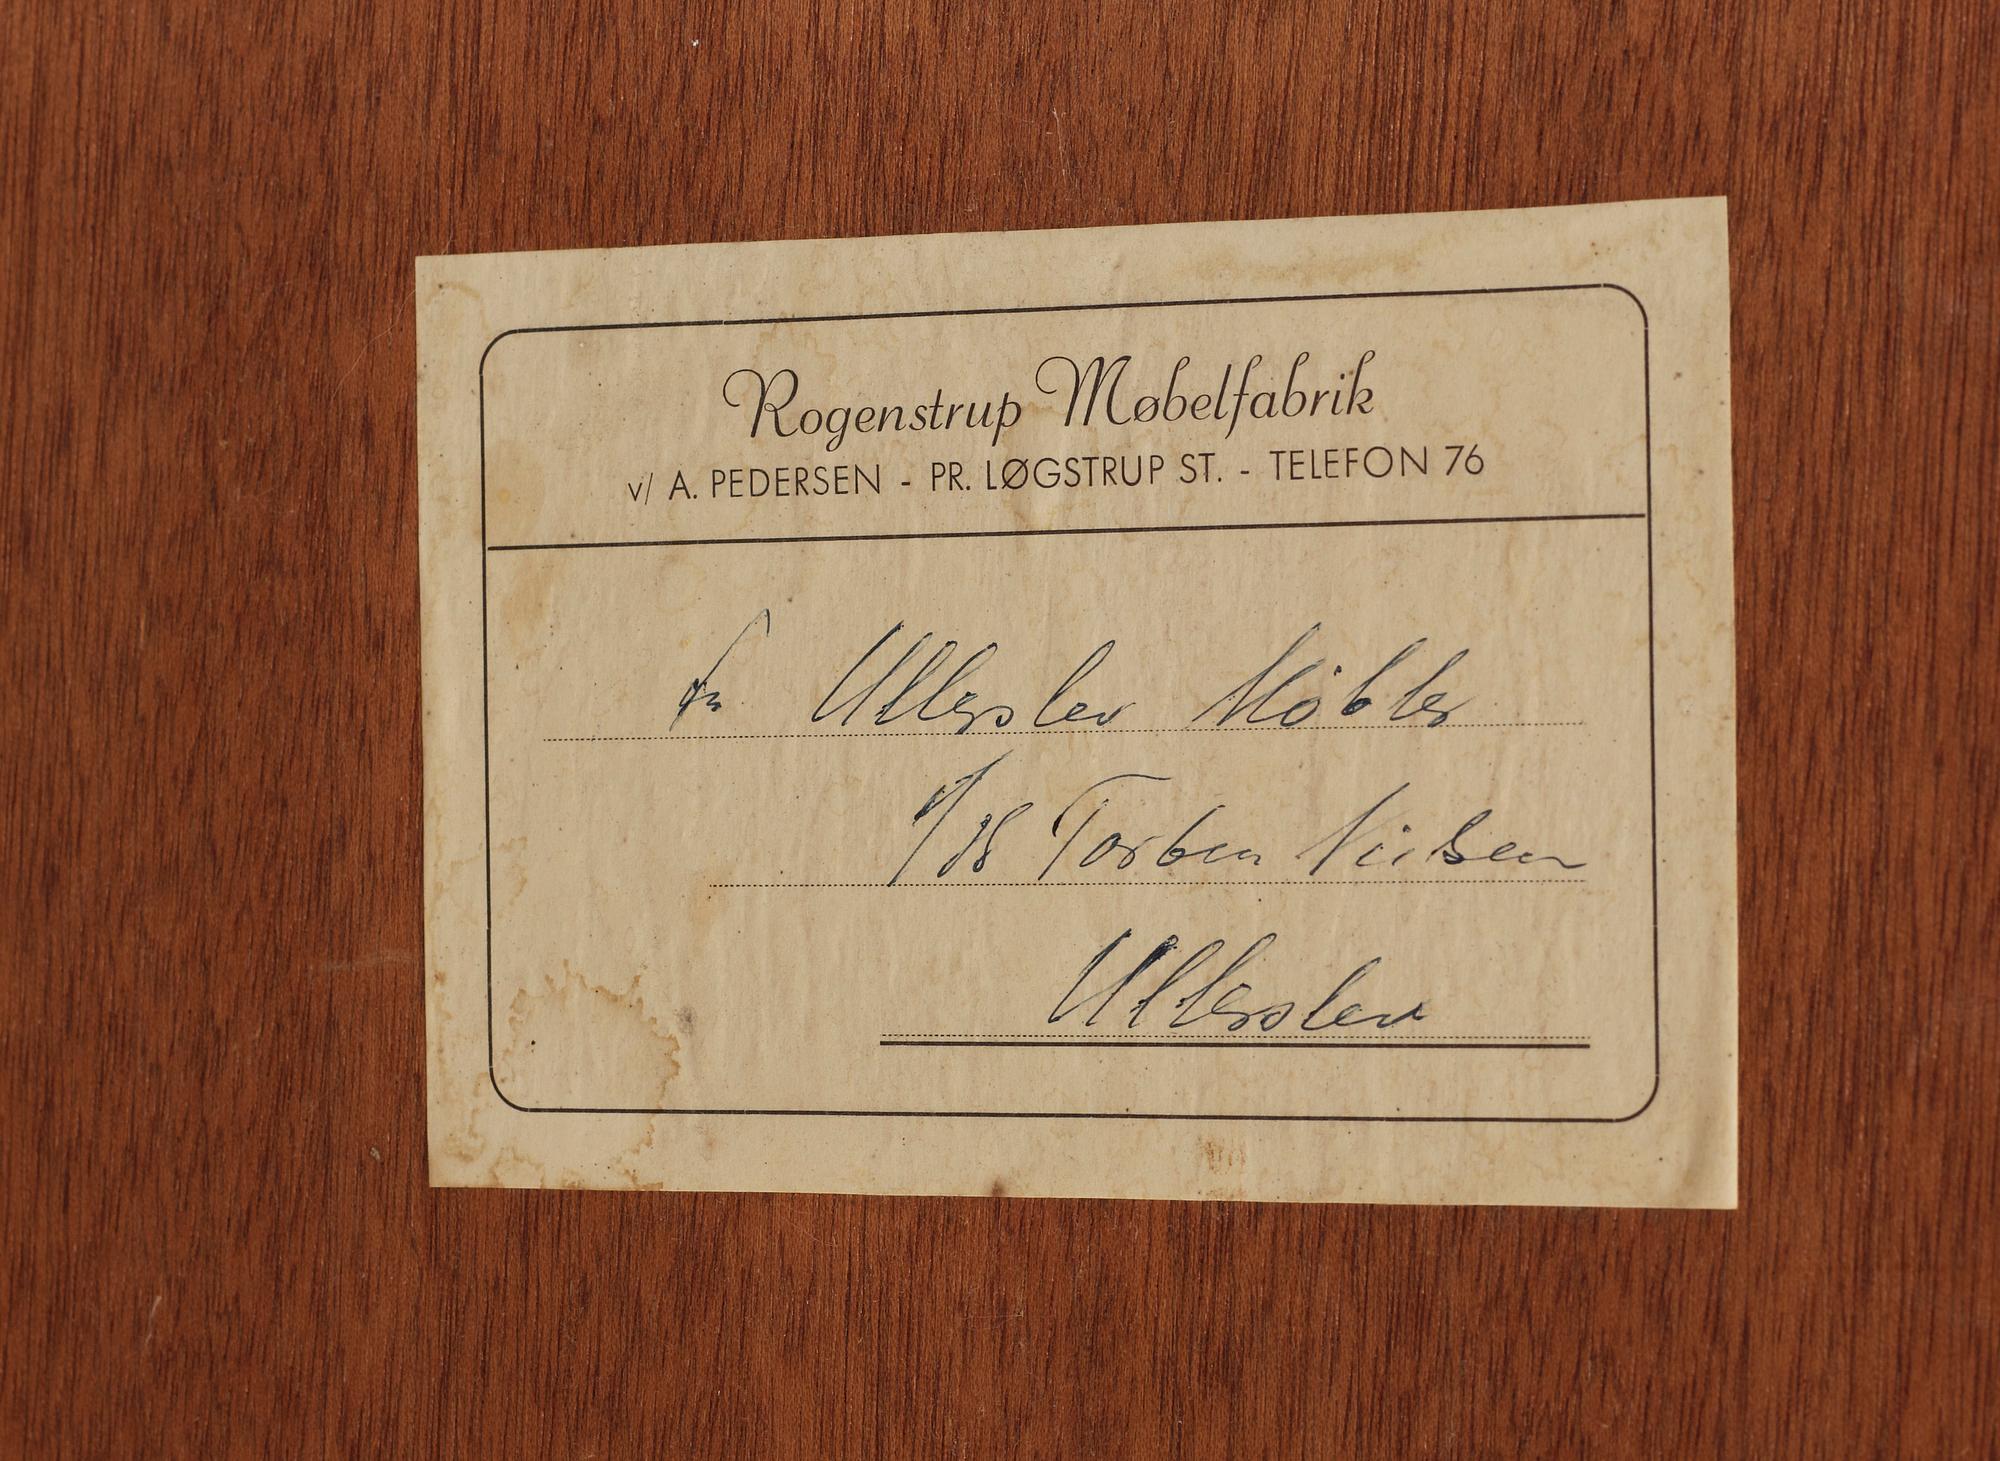 Rogenstrup Møbelfabrik
v/ A. PEDERSEN - PR. LØGSTRUP ST. - TELEFON 76
Ullerslev Möbler
Torben Nielsen
Ullerslev